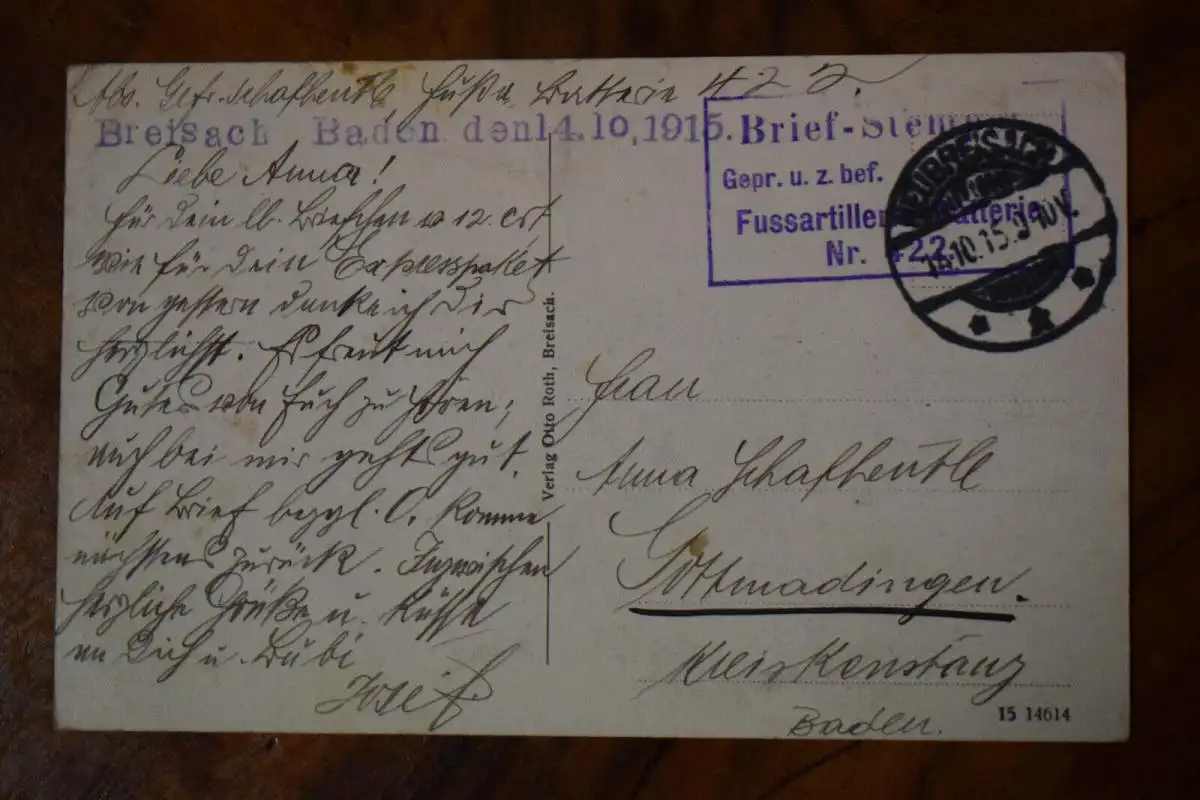 Abs. Gefr. Schafheutle, Fußa. Batterie 422.
Breisach Baden den 14.10.1915.
Liebe Anna!
Für Dein lb. Briefchen v 12. crt,
wie für Dein Expresspaket
von gestern danke ich Dir
herzlichst. Es freut mich
Gutes von Euch zu hören;
auch bei mir gehts gut.
Auf Brief bzgl. O. komme
nächstens zurück. Inzwischen
herzliche Grüße u. Küsse
an Dich u. Bubi
Josef
Verlag Otto Roth, Breisach.
Brief-Stempel
Gepr. u. z. bef.
Fussartillerie-Batterie
Nr. 422
NEUBREISACH
14.10.15.9-10V.
Frau
Anna Schafheutle
Gottmadingen.
Kreis Konstanz
Baden.
15 14614